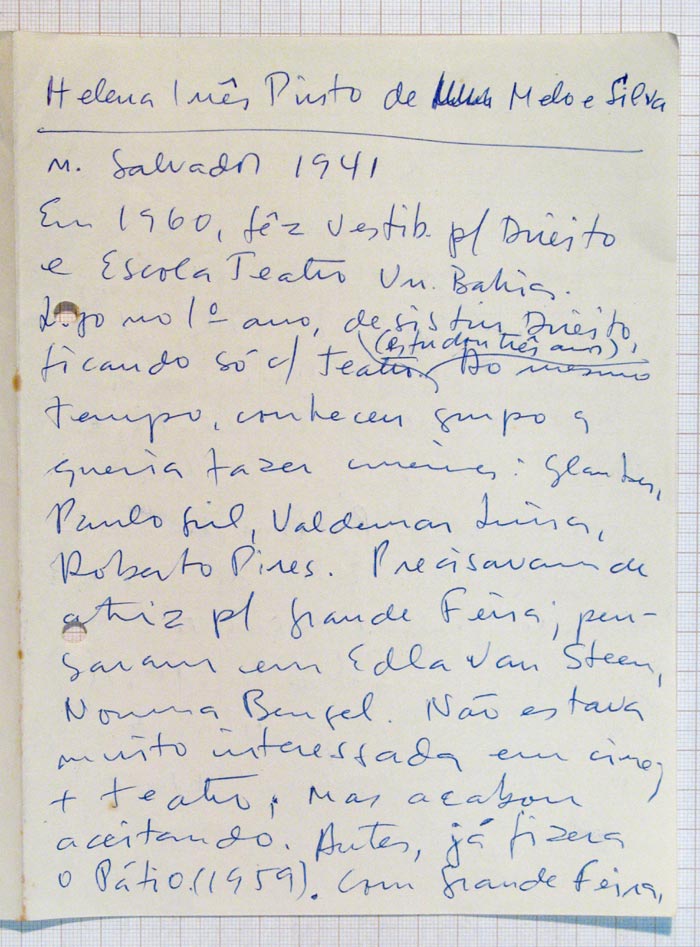 Helena Inês Pinto de Melo e Silva
n. Salvador 1941
Em 1960, fêz vestib. p/ Direito
e Escola Teatro Un. Bahia.
Logo no 1º ano, desistiu Direito,
ficando só c/ Teatro (estudou três anos). Ao mesmo
tempo, conheceu grupo q
queria fazer cinema: Glauber,
Paulo Gil, Valdemar Lima,
Roberto Pires. Precisavam de
atriz p/ Grande Feira; pen-
saram em Edla Van Steen,
Norma Bengel. Não estava
muito interessada em cine,
+ teatro; mas acabou
aceitando. Antes, já fizera
o Pátio (1959). Com Grande Feira,